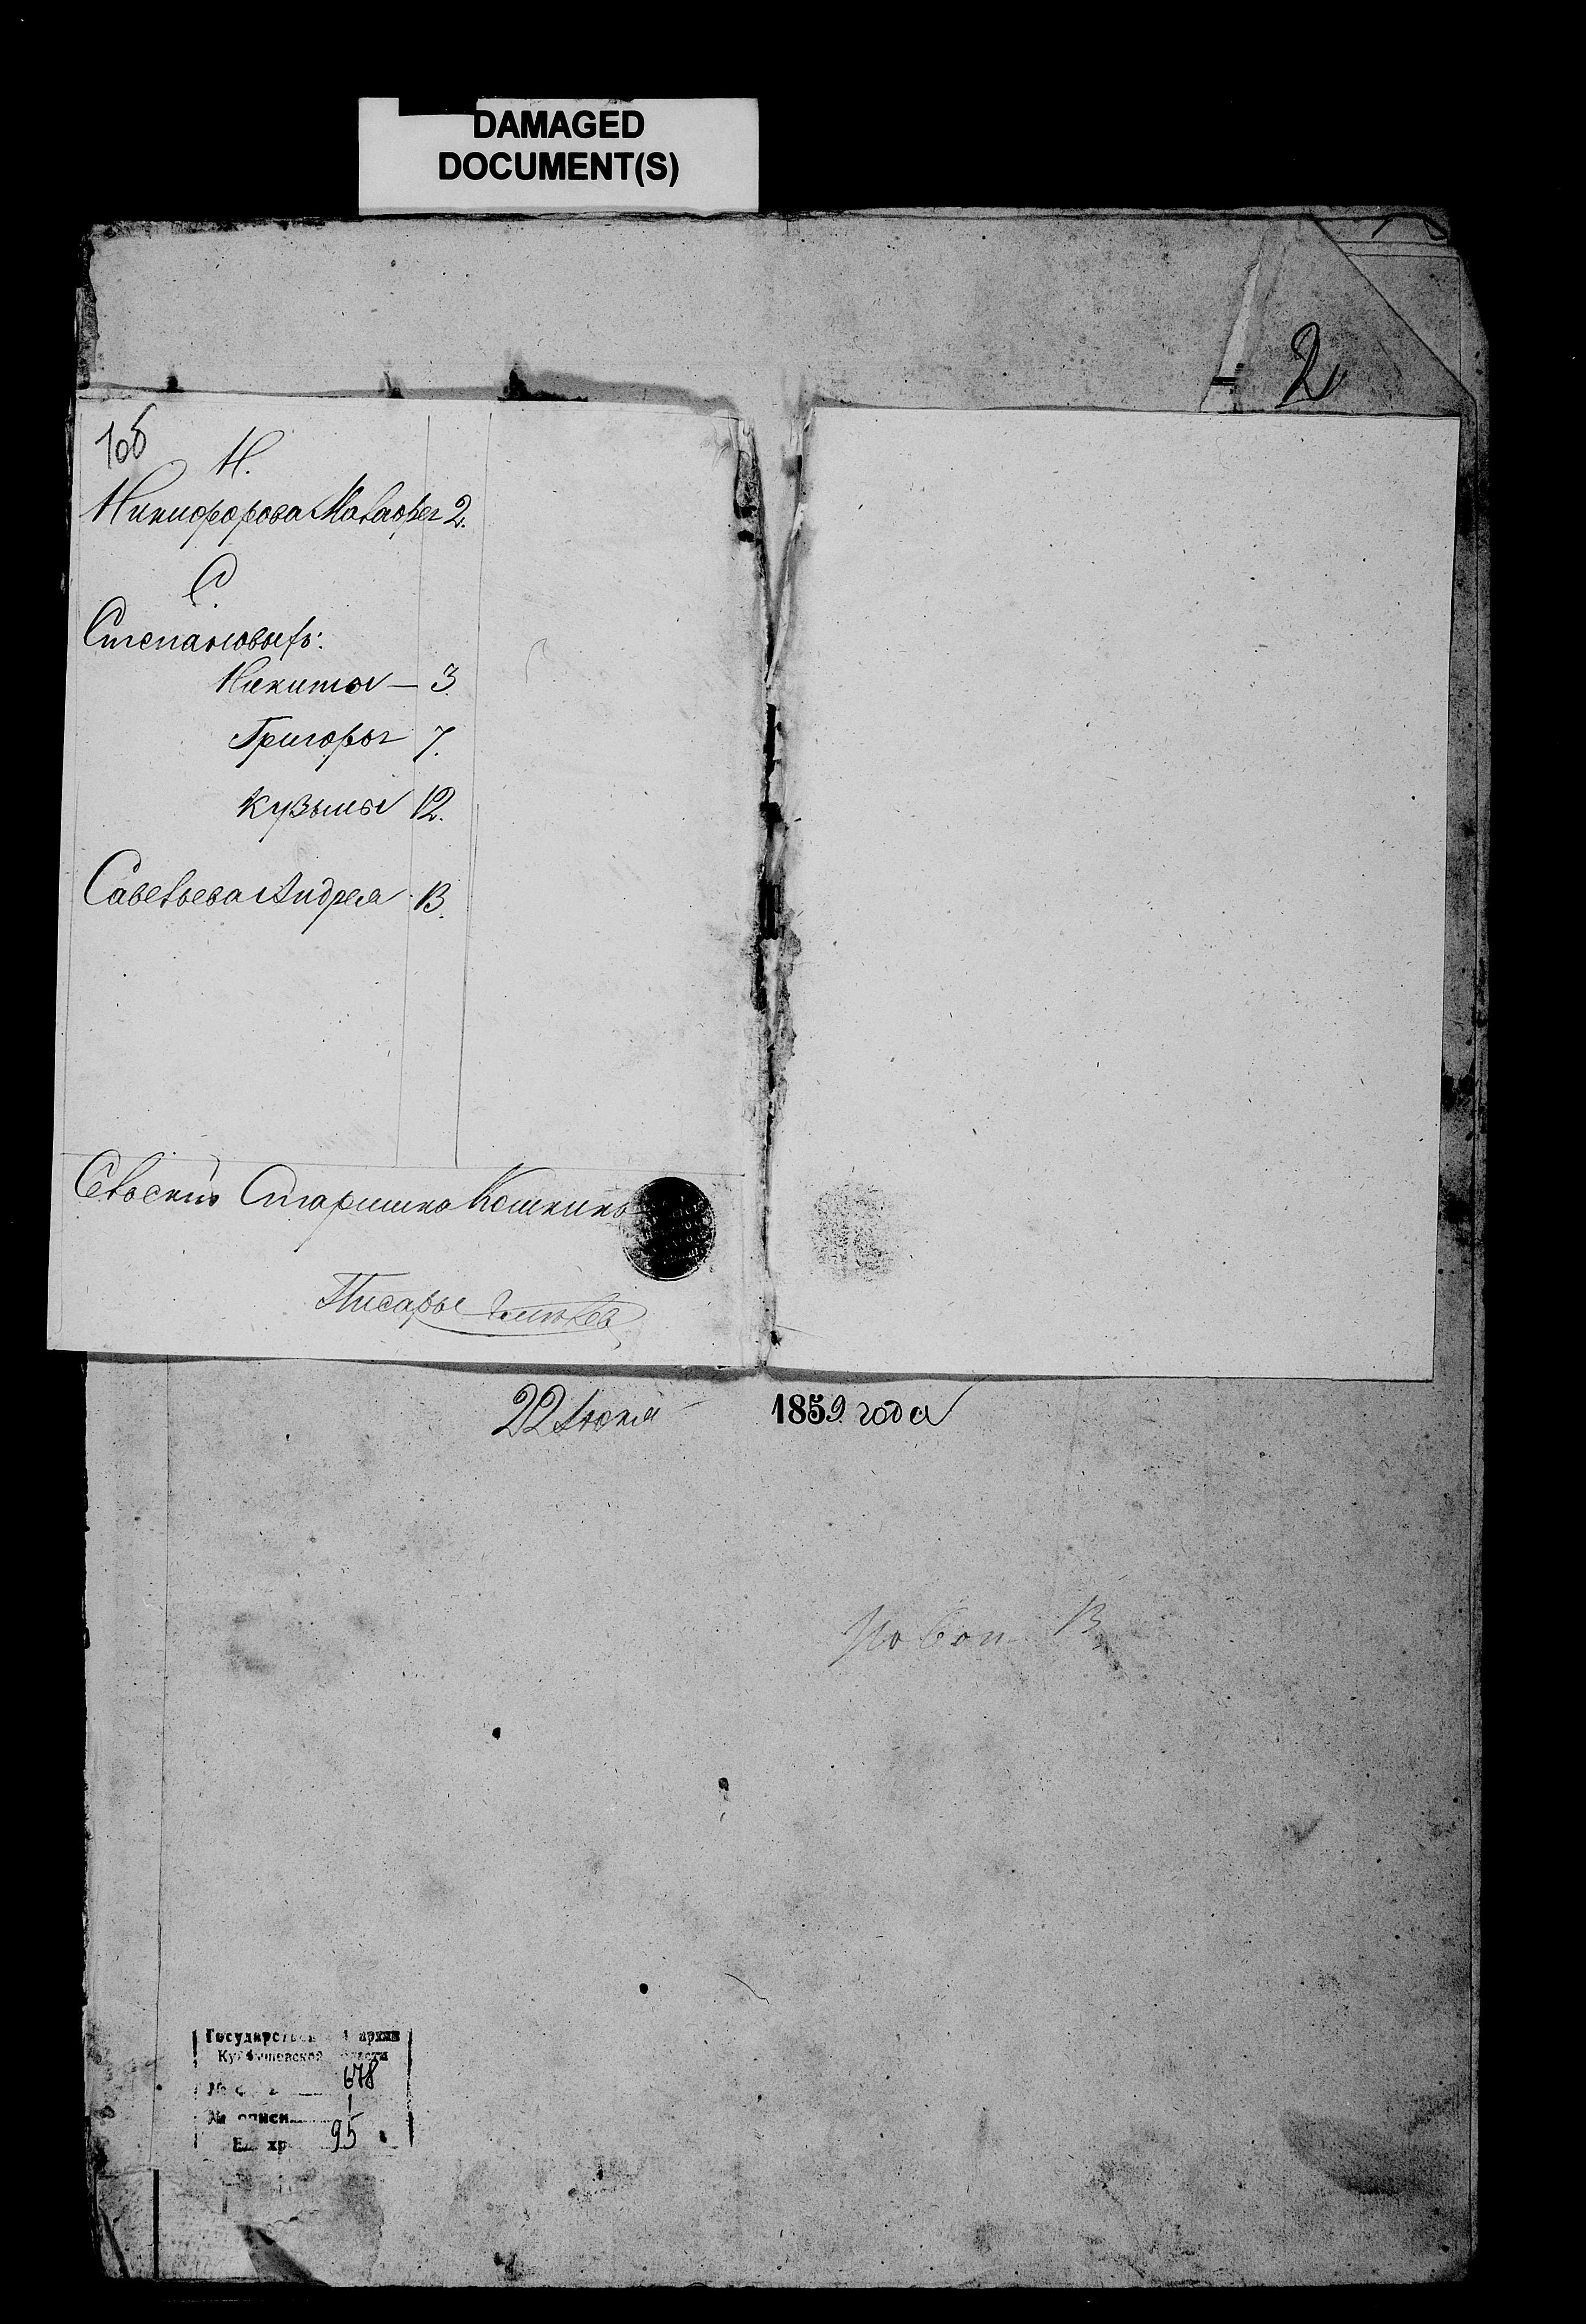 DAMAGED
DOCUMENT(S)
2
1об
Н.
Никифорова 2.
С.
Степановыхъ:
Никиты — 3.
Григорья 7.
Кузьмы 12.
Савельева Андрея 13.
Сельскій Старшина Кошкинъ
Писарь
22 Июня 1859 года
Государств архив
Куйбышевской области
678
№ описи 1
Ед. хр 95